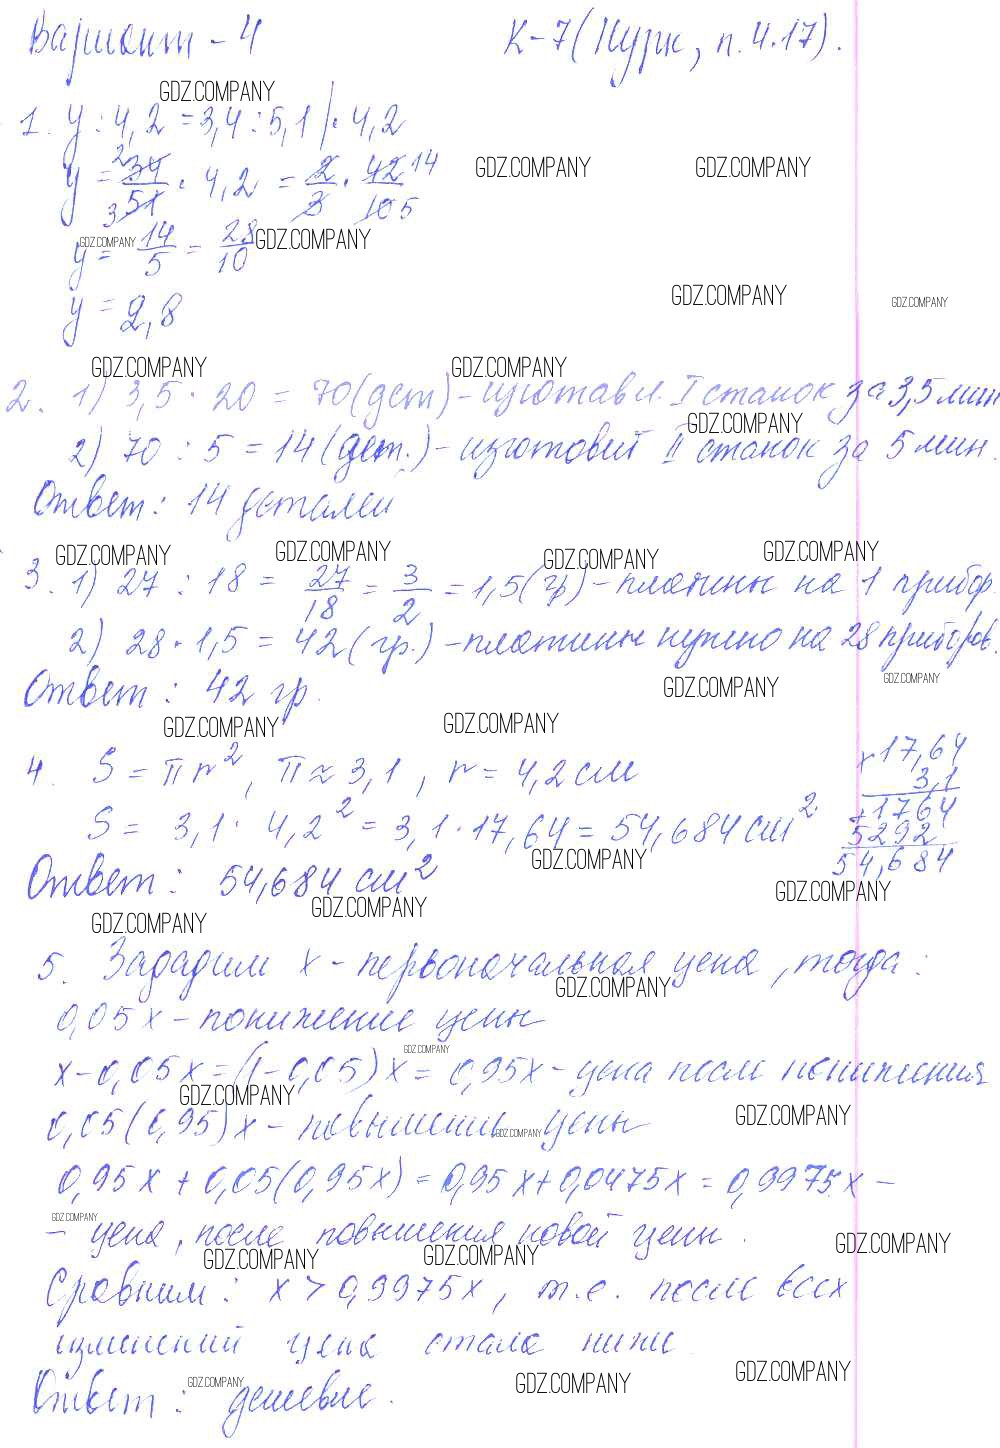 Вариант - 4 К-7 (Нурк, п. 4.17).
1. y : 4,2 = 3,4 : 5,1 | · 4,2
y = 34/51 · 4,2 = 2/3 · 42/10
2 3 14 5
y = 14/5 = 28/10
y = 2,8
2. 1) 3,5 · 20 = 70 (дет) - изготавл. I станок за 3,5 мин
2) 70 : 5 = 14 (дет.) - изготовит II станок за 5 мин.
Ответ: 14 деталей
3. 1) 27 : 18 = 27/18 = 3/2 = 1,5 (гр) - платины на 1 прибор.
2) 28 · 1,5 = 42 (гр.) - платины нужно на 28 приборов.
Ответ: 42 гр.
4. S = πr², π ≈ 3,1, r = 4,2 см
S = 3,1 · 4,2² = 3,1 · 17,64 = 54,684 см²
× 17,64
3,1
+ 1764
5292
54,684
Ответ: 54,684 см²
5. Зададим x - первоначальная цена, тогда:
0,05x - понижение цены
x - 0,05x = (1 - 0,05)x = 0,95x - цена после понижения
0,05(0,95)x - повышень цены
0,95x + 0,05(0,95x) = 0,95x + 0,0475x = 0,9975x -
- цена, после повышения новой цены.
Сравним: x > 0,9975x, т.е. после всех
изменений цена стала ниже
Ответ: дешевле.
GDZ.COMPANY